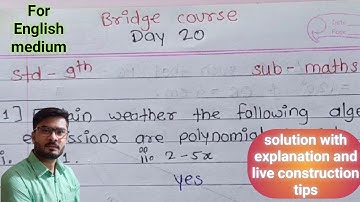 For
English
medium
Bridge course
Day 20
Date
Page
std - 9th
sub - maths
1] ain weather the following alge
essions are polynomial
i. 1. ii. 2 - 5x
yes
solution with
explanation and
live construction
tips